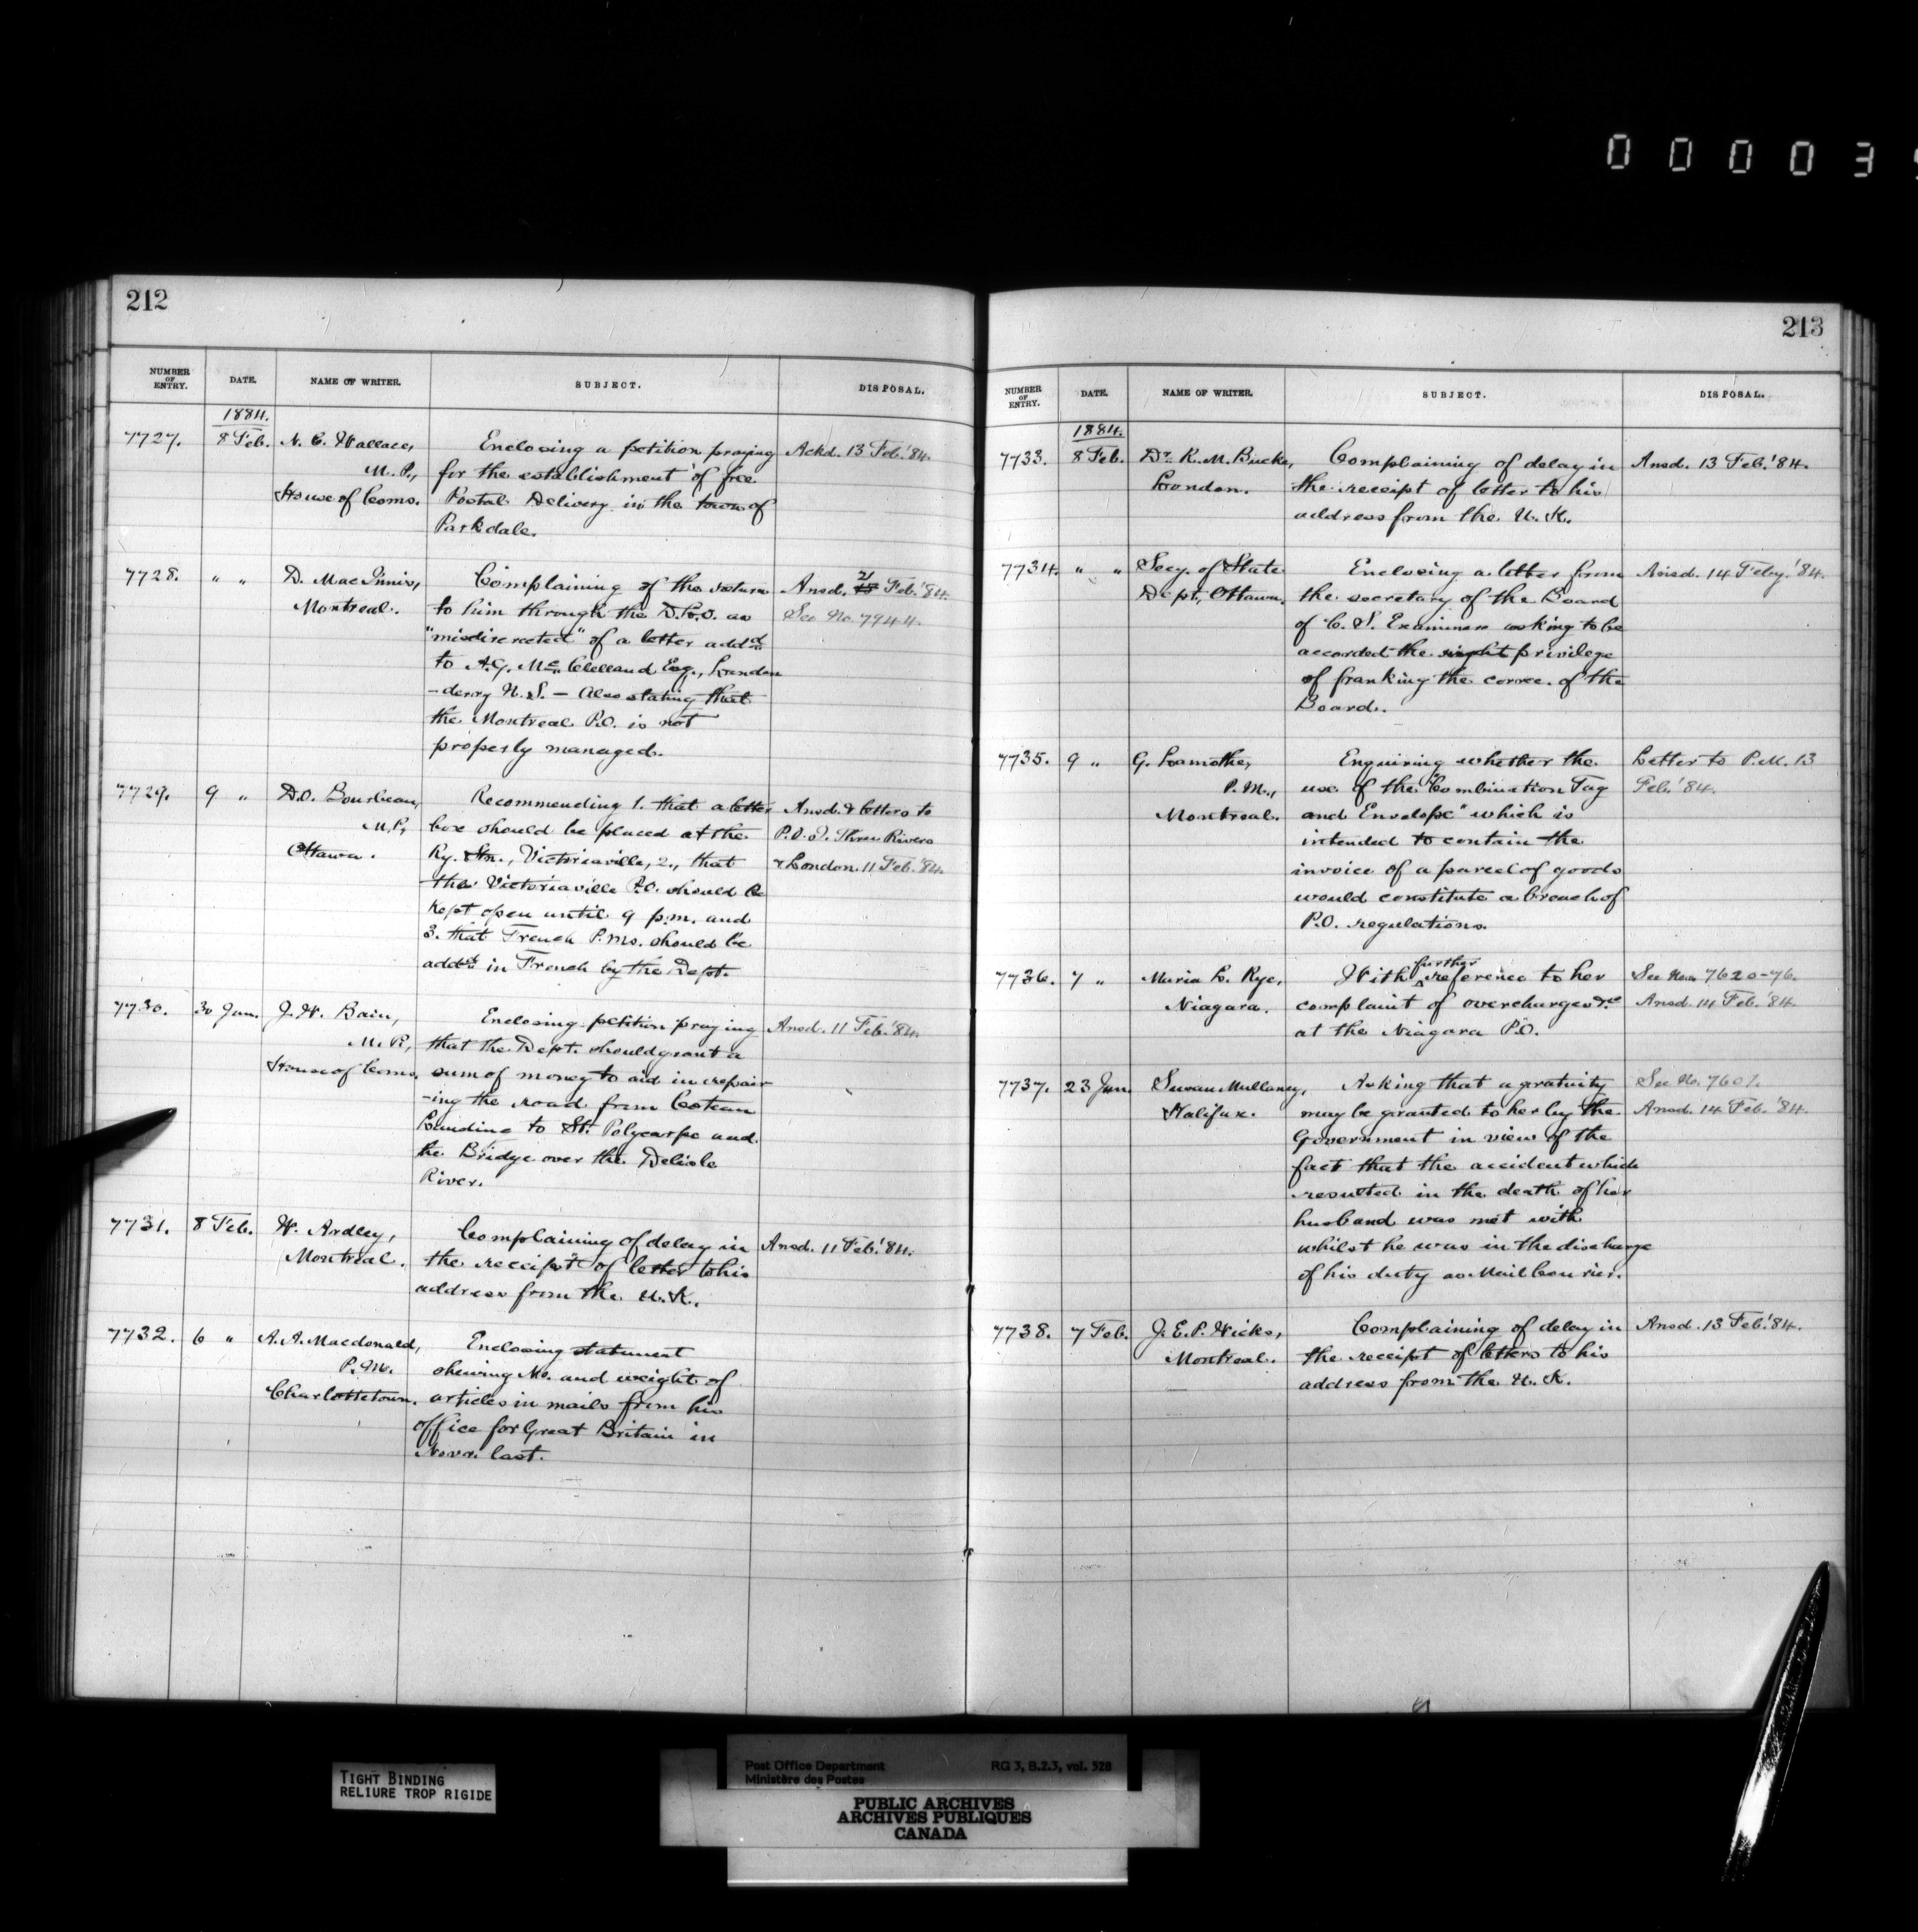 0 0 0 0 3
212
NUMBER OF ENTRY. DATE. NAME OF WRITER. SUBJECT. DISPOSAL.
1884.
7727. 8 Feb. N. C. Wallace, Enclosing a petition praying Ackd. 13 Feb. '84.
M. P., for the establishment of free
House of Coms. Postal Delivery in the town of
Parkdale.
7728. " " D. MacInnis, Complaining of the return Ansd. 21 Feb. '84.
Montreal. to him through the D.L.O. as See No. 7944.
"misdirected" of a letter addd
to A.G. Mc Clelland Esq., London
-derry N.S. — Also stating that
the Montreal P.O. is not
properly managed.
7729. 9 " D.O. Bourbeau, Recommending 1. that a letter Ansd. & letters to
M.P., box should be placed at the P.O.I. Three Rivers
Ottawa. Ry. Stn., Victoriaville, 2., that & London. 11 Feb. '84.
the Victoriaville P.O. should be
kept open until 9 p.m. and
3. that French P.Ms. should be
addd in French by the Dept.
7730. 30 Jan. J. W. Bain, Enclosing petition praying Ansd. 11 Feb. '84.
M. P., that the Dept. should grant a
House of Coms. sum of money to aid in repair-
-ing the road from Coteau
Landing to St. Polycarpe and
the Bridge over the Delisle
River.
7731. 8 Feb. W. Ardley, Complaining of delay in Ansd. 11 Feb. '84.
Montreal. the receipt of letter to his
address from the U. K.
7732. 6 " A. A. Macdonald, Enclosing statement
P.M. shewing No. and weight of
Charlottetown. articles in mails from his
office for Great Britain in
Novr. last.
213
NUMBER OF ENTRY. DATE. NAME OF WRITER. SUBJECT. DISPOSAL.
1884.
7733. 8 Feb. Dr. R. M. Bucke, Complaining of delay in Ansd. 13 Feb. '84.
London. the receipt of letter to his
address from the U. K.
7734. " " Secy. of State Enclosing a letter from Ansd. 14 Feby. '84.
Dept., Ottawa. the secretary of the Board
of C. S. Examiners asking to be
accorded the right privilege
of franking the corres. of the
Board.
7735. 9 " G. Lamothe, Enquiring whether the Letter to P.M. 13
P.M., use of the "Combination Tag Feb. '84.
Montreal. and Envelope" which is
intended to contain the
invoice of a parcel of goods
would constitute a breach of
P.O. regulations.
7736. 7 " Maria L. Rye, With further reference to her See Nos. 7620-76.
Niagara. complaint of overcharges &c Ansd. 14 Feb. '84.
at the Niagara P.O.
7737. 23 Jan. Susan Mullaney, Asking that a gratuity See No. 7601.
Halifax. may be granted to her by the Ansd. 14 Feb. '84.
Government in view of the
fact that the accident which
resulted in the death of her
husband was met with
whilst he was in the discharge
of his duty as Mail Courier.
7738. 7 Feb. J. E. P. Hicks, Complaining of delay in Ansd. 13 Feb. '84.
Montreal. the receipt of letters to his
address from the U. K.
TIGHT BINDING
RELIURE TROP RIGIDE
Post Office Department RG 3, B.2.3, vol. 528
Ministère des Postes
PUBLIC ARCHIVES
ARCHIVES PUBLIQUES
CANADA